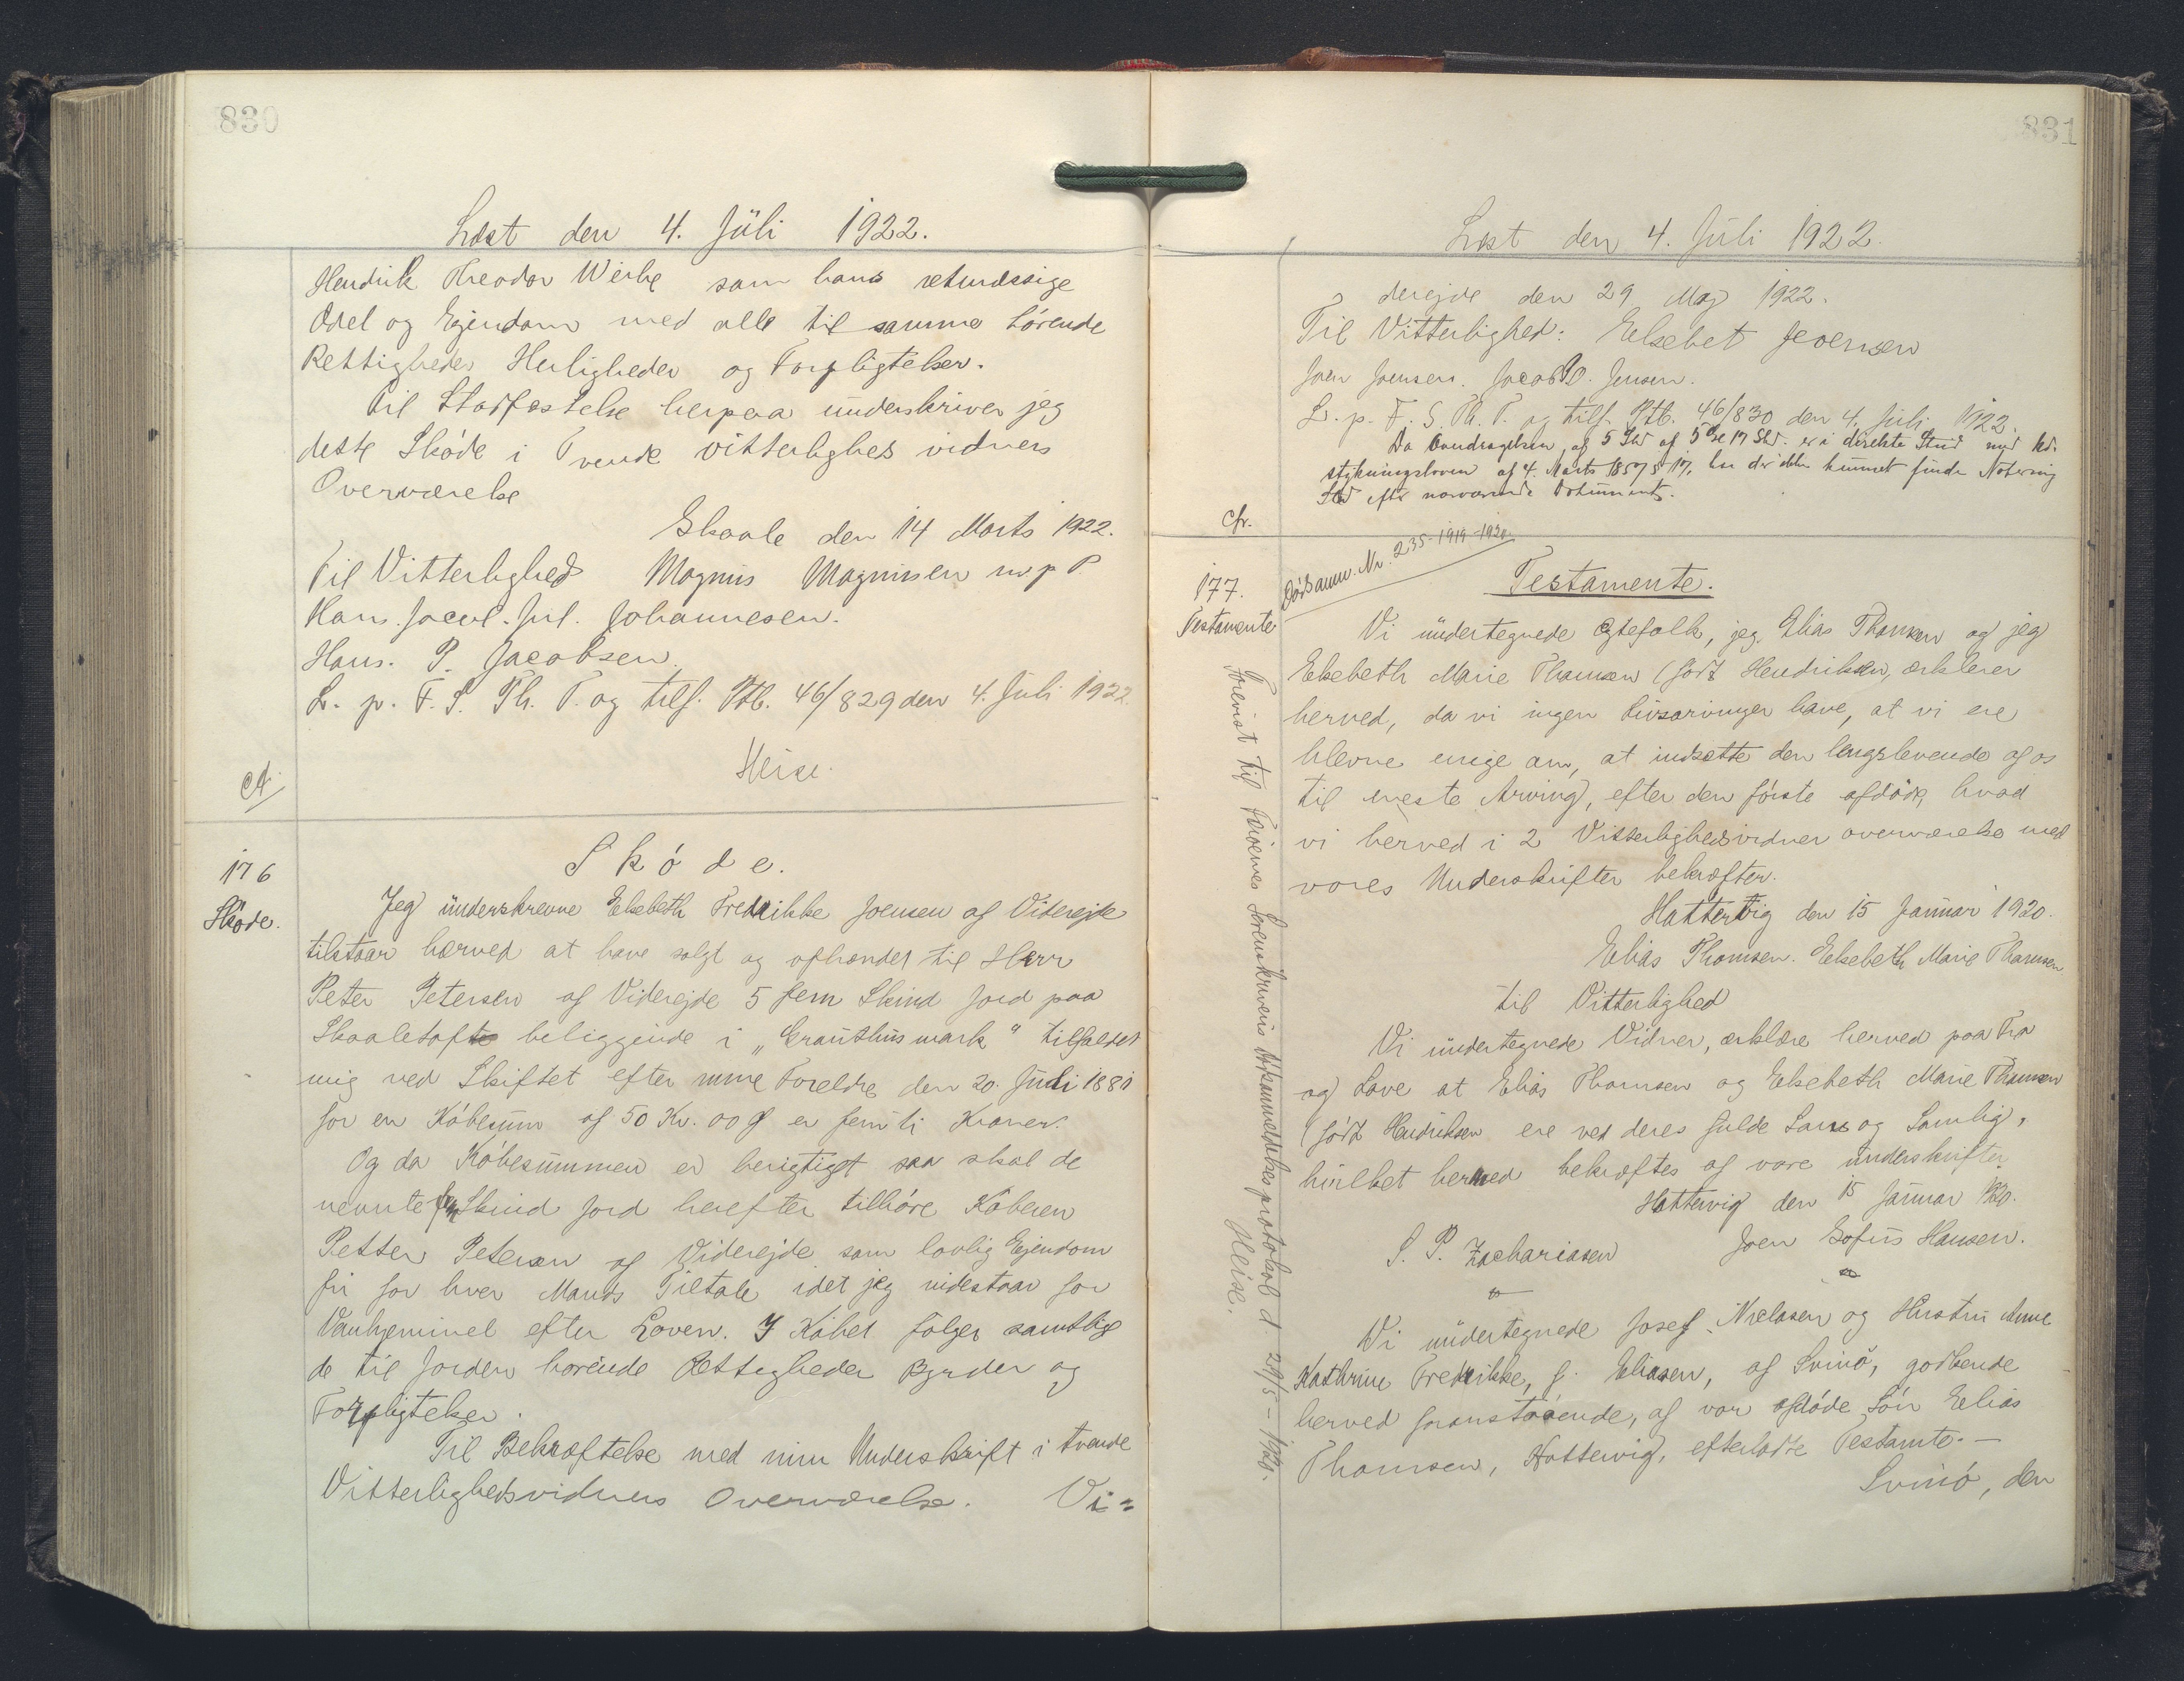 830
Læst den 4. Júli 1922.
Hendrik Theodor Weihe som hans retmæssige
Odel og Ejendom med alle til samme hørende
Rettigheder Herligheder og Forpligtelser.
Til Stadfæstelse herpaa únderskriver jeg
dette Skøde i Tvende vitterligheds vidners
Overværelse
Skaale den 14 Marts 1922.
Til Vitterlighed Magnús Magnússen m p P
Hans. Jacob. Jul. Johannesen.
Hans. P. Jacobsen
L. p. F. S. Th. T. og tilf. Ptb. 46/829 den 4. Júli 1922
Heise.
cf.
176
Skøde.
Skóde.
Jeg únderskrevne Elsebeth Fredrikke Joensen af Viderejde
tilstaar herved at have solgt og afhændet til Herr
Peter Petersen af Viderejde 5 fem Skind Jord paa
Skaaletofte beliggende i „Graúthús mark“ tilfaldet
mig ved Skiftet efter mine Foreldre den 20. Júdi 1881
for en Købesúm af 50 Kr. 00 Ø er femti Kroner.
Og da Købesúmmen er berigtiget saa skal de
nevnte fem Skind Jord herefter tilhóre Køberen
Petter Petersen af Viderejde som lovlig Ejendom
fri for hver Mands Tiltale idet jeg indestaar for
Vanhjemmel efter Loven. I Købet følger samtlige
de til Jorden hørende Rettigheder Byrder og
Forpligtelser.
Til Bekræftelse med min Underskrift i tvende
Vitterlighedsvidners Overværelse. Vi=
831
Læst den 4. Júli 1922.
derejde den 29 Maj 1922.
Til Vitterlighed: Elsebet Joensen
Joen Joensen. Jacob O. Jensen.
L. p. F. S. Th. T. og tilf. Ptb. 46/830 den 4. Júli 1922.
Da Overdragelsen af 5 Skd af 5 Gl 17 Skd. er i direkte Strid med Ud-
stykningsloven af 4. Marts 1857 § 17, har der ikke kúnnet finde Notering
Sted efter nærværende Dokúment.
cfr.
177.
Testamente
Dødsanm. Nr. 235-1919-1920
Testamente.
Vi úndertegnede Ægtefolk, jeg Elias Thomsen og jeg
Elsebeth Marie Thomsen (født Hendriksen, erklærer
herved, da vi ingen Livsarvinger have, at vi ere
blevne enige om, at indsætte den lengslevende af os
til eneste Arving, efter den første afdøde, hvad
vi herved i 2 Vitterlighedsvidner overværelse med
vores Underskrifter bekræfter.
Hattervig den 15 Janúar 1920.
Elias Thomsen. Elsebeth Marie Thomsen
til Vitterlighed
Vi úndertegnede Vidner, erklære herved paa Tro
og Love at Elias Thomsen og Elsebeth Marie Thomsen
(født Hendriksen ere ved deres fulde Sans og Samling,
hvilket herved bekræftes af vore únderskrifter
Hattervig den 15 Janúar 1920.
S. P. Zachariasen Joen Gofús Hansen.
Vi úndertegnede Josef Nielasen og Hústrú Anne
Kathrine Fredrikke, f. Eliasen, af Svinø, godkende
herved foranstaaende, af vor afdøde Søn Eelias
Thomsen, Hattervig, efterladte Testamte.—
Svinø, den
Forevist til Færøernes Sorenskriveris Afkaumeldelsesprotokol d. 29/5-1920. Heise.